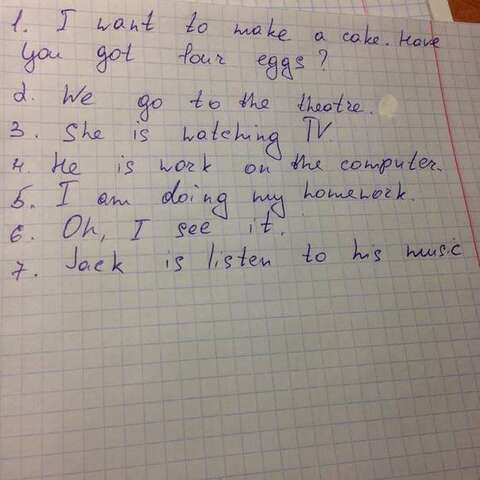 1. I want to make a cake. Have
you got four eggs?
2. We go to the theatre.
3. She is watching TV
4 He is work on the computer.
5. I am doing my homework.
6. Oh, I see it.
7. Jack is listen to his music